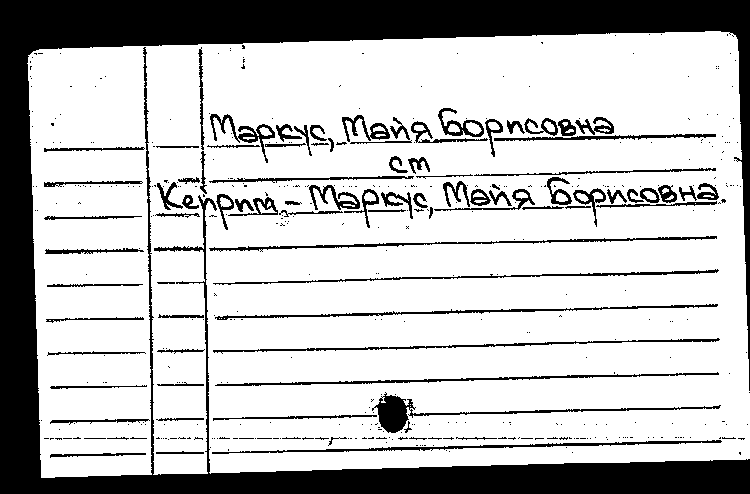 Маркус, Майя Борисовна
ст
Кейрим - Маркус, Майя Борисовна.